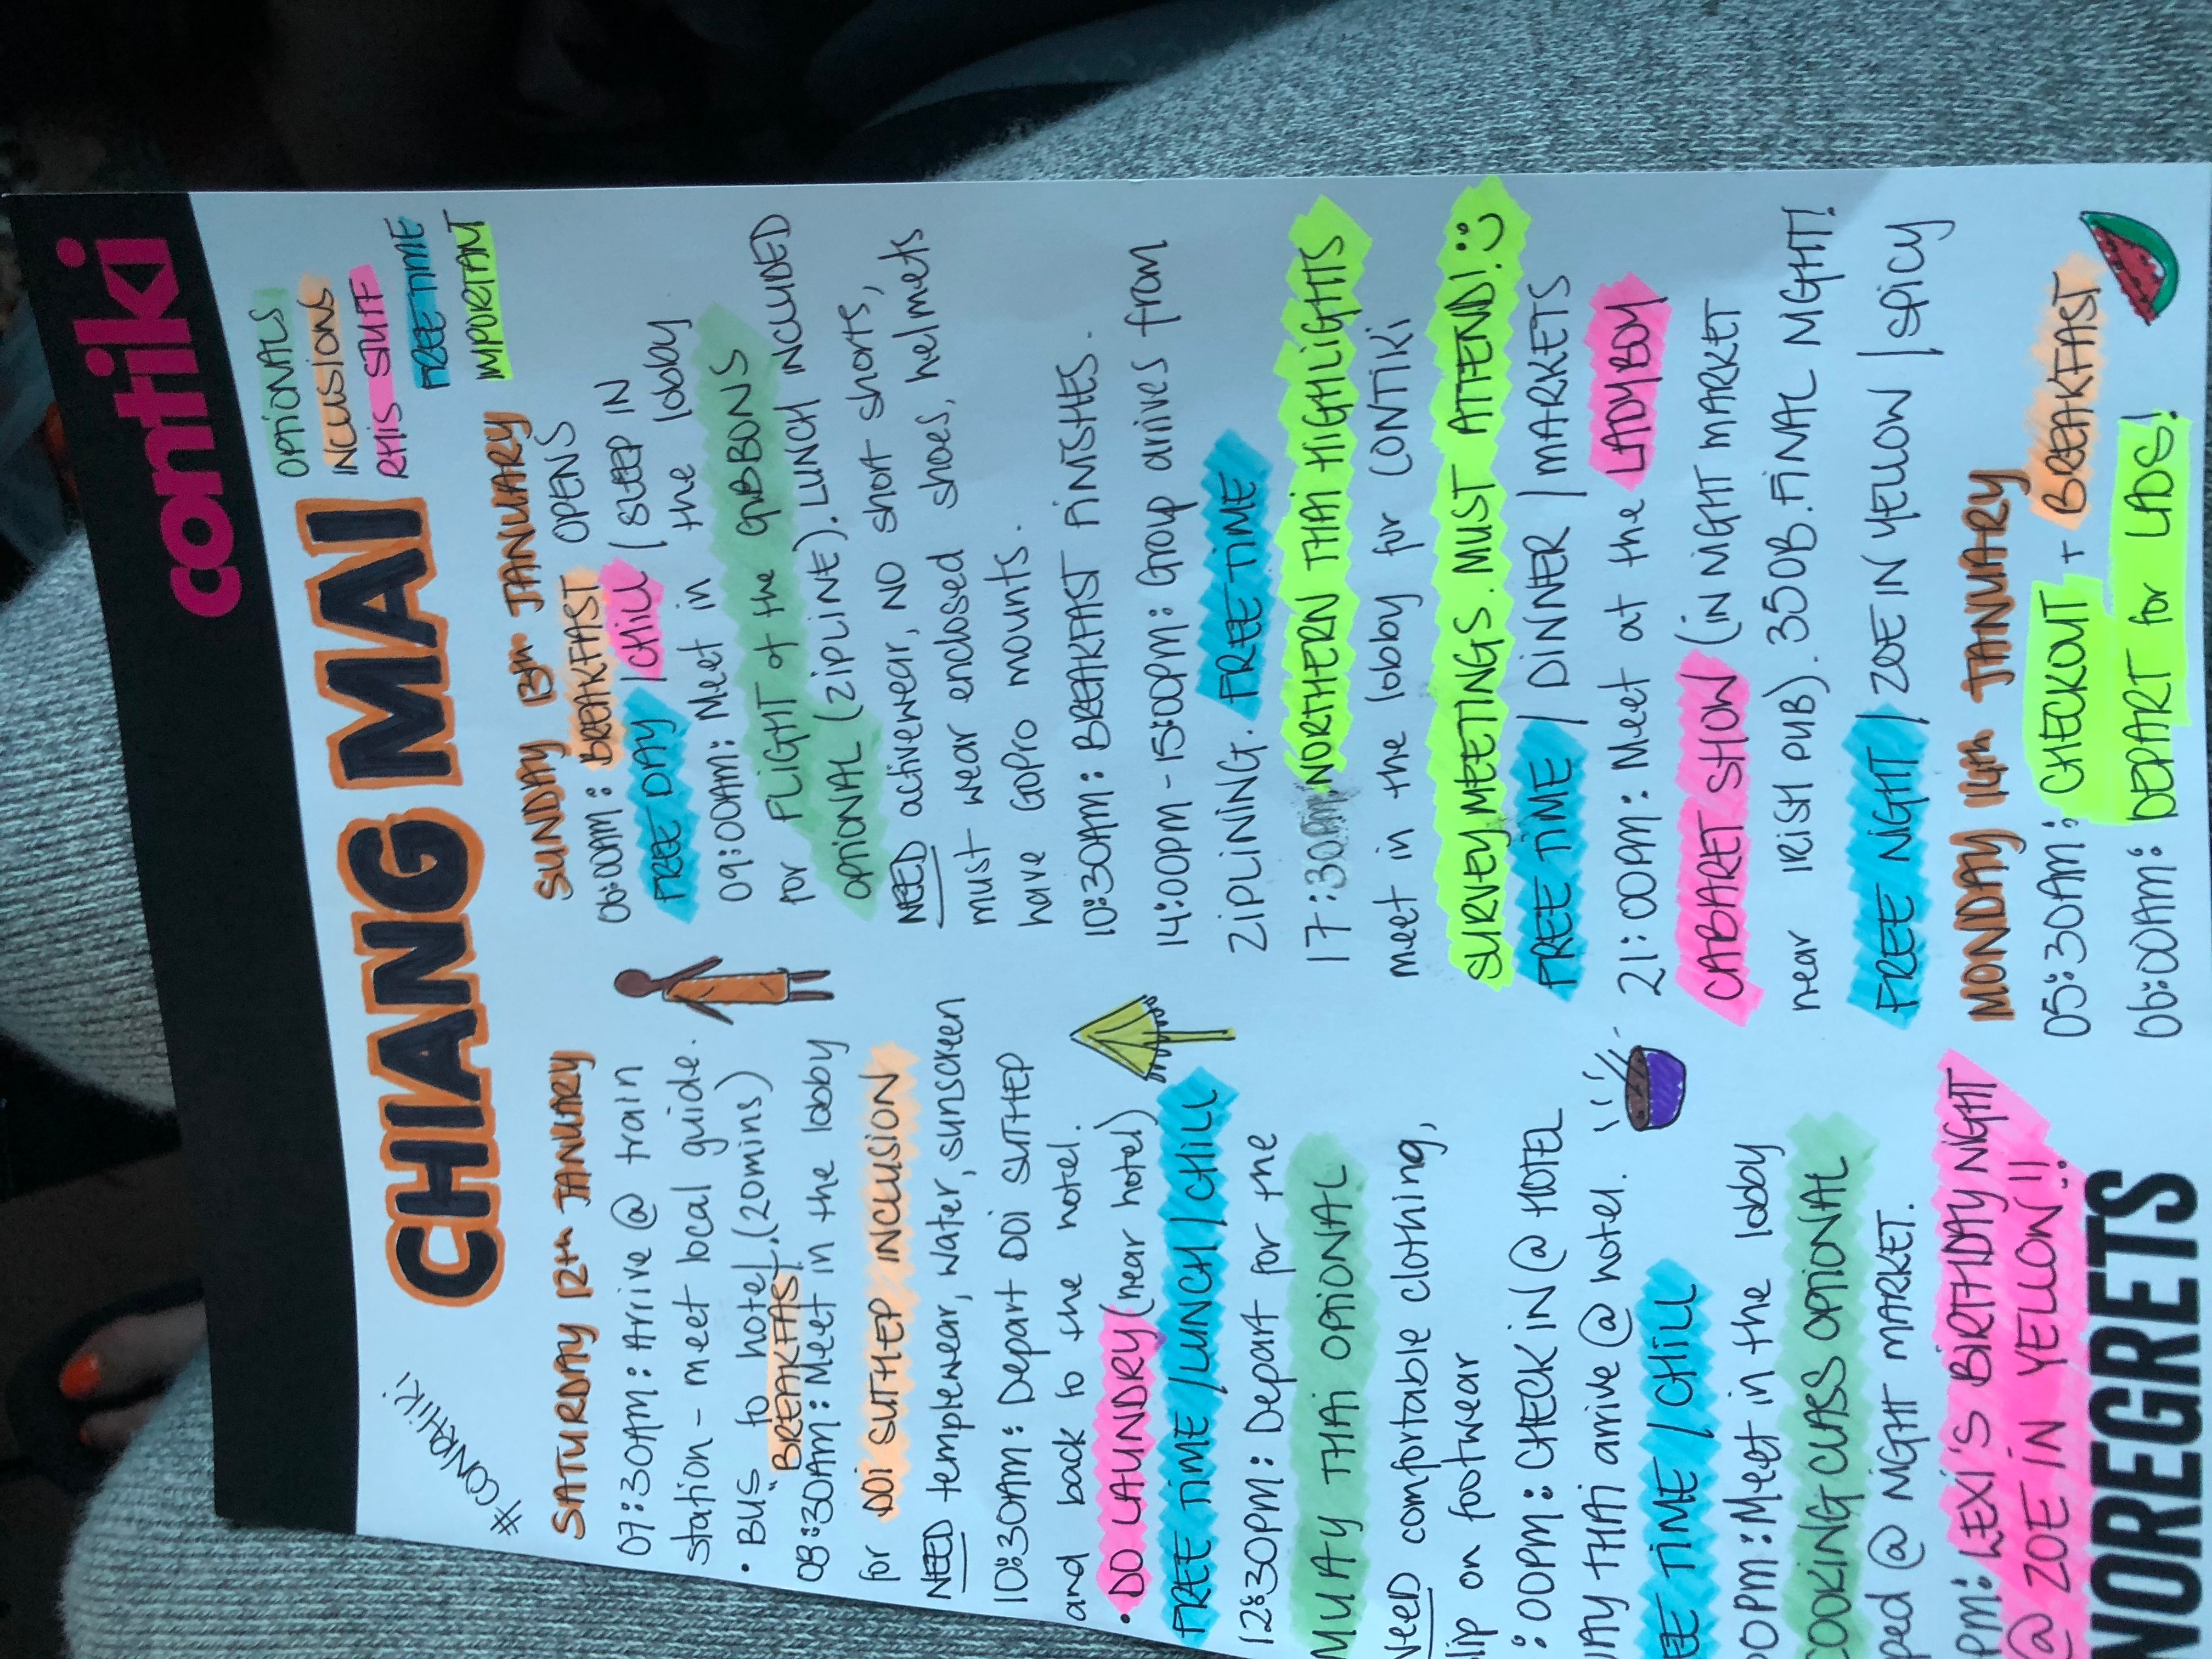 contiki
#CONRAHiKi
CHIANG MAI
OPTIONALS
INCLUSIONS
THIS STUFF
FREE TIME
IMPORTANT
SATURDAY 12th JANUARY
07:30AM: Arrive @ train
station - meet local guide.
• BUS to hotel. (20mins)
BREAKFAST
08:30AM: Meet in the lobby
for DOI SUTHEP INCLUSION
NEED templewear, water, sunscreen
10:30AM: Depart DOI SUTHEP
and back to the hotel.
• DO LAUNDRY (near hotel)
FREE TIME/LUNCH/CHILL
12:30PM: Depart for the
MUAY THAI OPTIONAL
NEED comfortable clothing,
slip on footwear
:00PM: CHECK IN @ HOTEL
THAI arrive @ hotel.
TIME / CHILL
PM: Meet in the lobby
COOKING CLASS OPTIONAL
@ NIGHT MARKET.
PM: LEXI'S BIRTHDAY NIGHT
@ ZOE IN YELLOW!!
NOREGRETS
SUNDAY 13th JANUARY
06:00AM: BREAKFAST OPENS
FREE DAY / CHILL / SLEEP IN
09:00AM: Meet in the lobby
for FLIGHT of the GIBBONS
OPTIONAL (ZIPLINE). LUNCH INCLUDED
NEED activewear, NO short shorts,
must wear enclosed shoes, helmets
have GoPro mounts.
10:30AM: BREAKFAST FINISHES.
14:00PM - 15:00PM: Group arives from
ZIPLINING. FREE TIME
17:30 NORTHERN THAI HIGHLIGHTS
meet in the lobby for CONTIKI
SURVEY MEETINGS. MUST ATTEND! :)
FREE TIME / DINNER / MARKETS
21:00PM: Meet at the LADYBOY
CABARET SHOW (IN NIGHT MARKET
near IRISH PUB). 350B. FINAL NIGHT!
FREE NIGHT / ZOE IN YELLOW / SPICY
MONDAY 14th JANUARY
05:30AM: CHECKOUT + BREAKFAST
06:00AM: DEPART for LAOS!